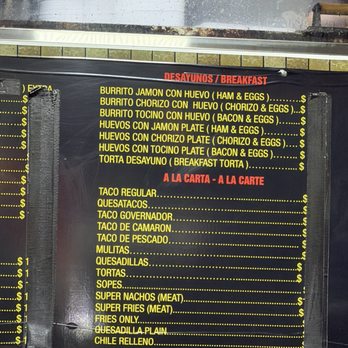 DESAYUNOS / BREAKFAST
BURRITO JAMON CON HUEVO ( HAM & EGGS ).......$
BURRITO CHORIZO CON HUEVO ( CHORIZO & EGGS )...$
BURRITO TOCINO CON HUEVO ( BACON & EGGS ).......$
HUEVOS CON JAMON PLATE ( HAM & EGGS )..........$
HUEVOS CON CHORIZO PLATE ( CHORIZO & EGGS )....$
HUEVOS CON TOCINO PLATE ( BACON & EGGS )........$
TORTA DESAYUNO ( BREAKFAST TORTA )..............$
A LA CARTA - A LA CARTE
TACO REGULAR................................$
QUESATACOS.................................$
TACO GOVERNADOR............................$
TACO DE CAMARON............................$
TACO DE PESCADO............................$
MULITAS....................................$
QUESADILLAS................................$
TORTAS.....................................$
SOPES......................................$
SUPER NACHOS (MEAT).........................$
SUPER FRIES (MEAT)..........................$
FRIES ONLY.................................$
QUESADILLA PLAIN...........................$
CHILE RELLENO..............................$